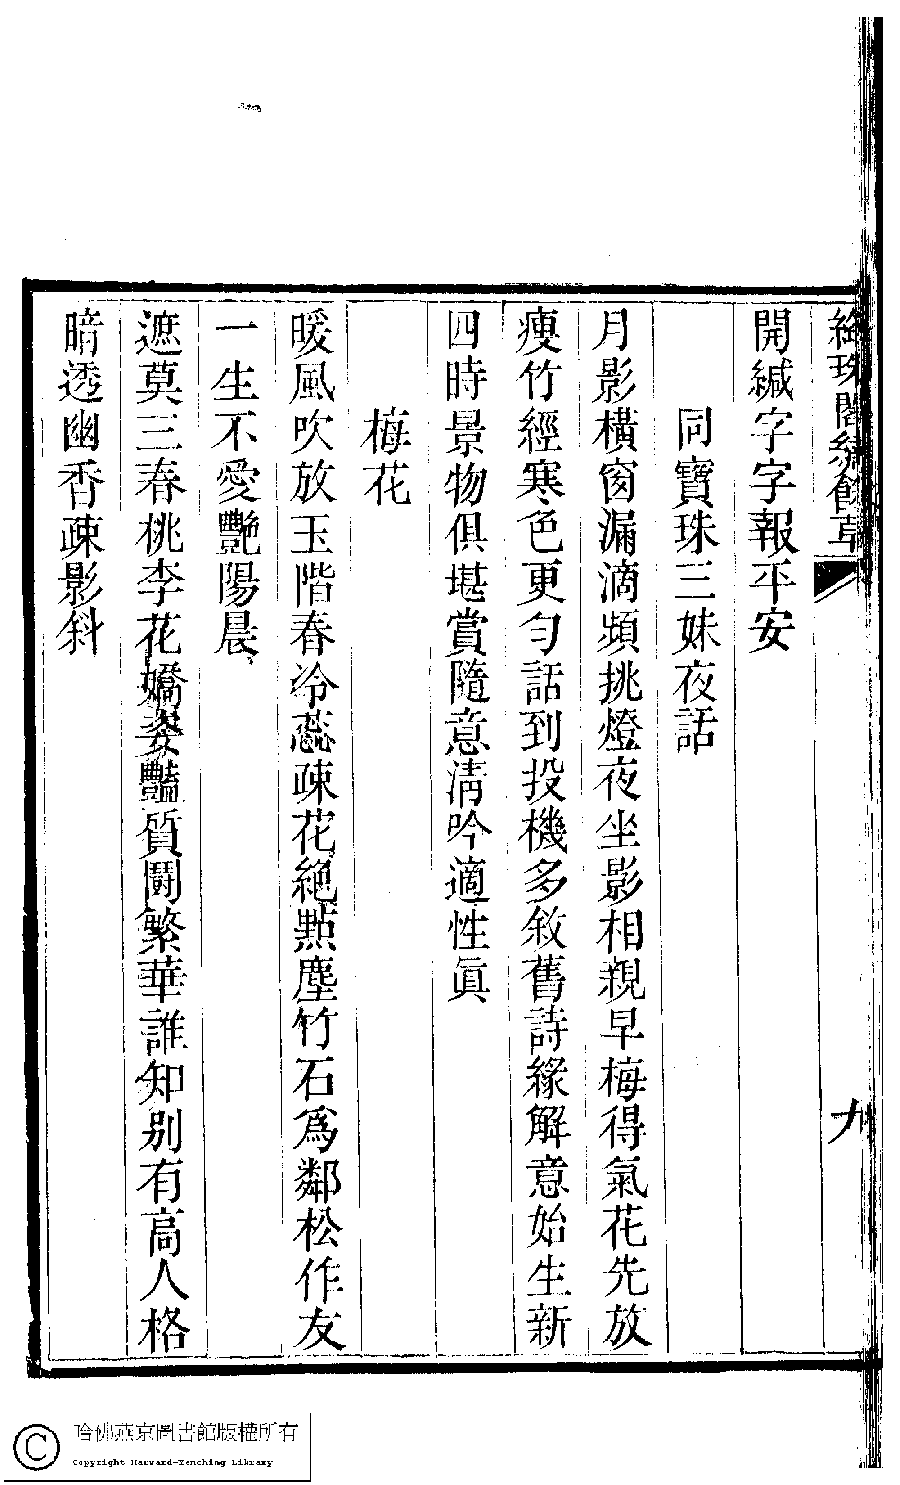 絳珠閣繡餘草
九
開緘字字報平安
同寶珠三妹夜話
月影橫窗漏滴頻挑燈夜坐影相親早梅得氣花先放
瘦竹經寒色更勻話到投機多敘舊詩緣解意始生新
四時景物俱堪賞隨意淸吟適性眞
梅花
暖風吹放玉階春冷蕊疎花絕點塵竹石爲鄰松作友
一生不愛艷陽晨
遮莫三春桃李花嬌姿豔質鬭繁華誰知別有高人格
暗透幽香疎影斜
哈佛燕京圖書館版權所有
Copyright Harvard-Yenching Library